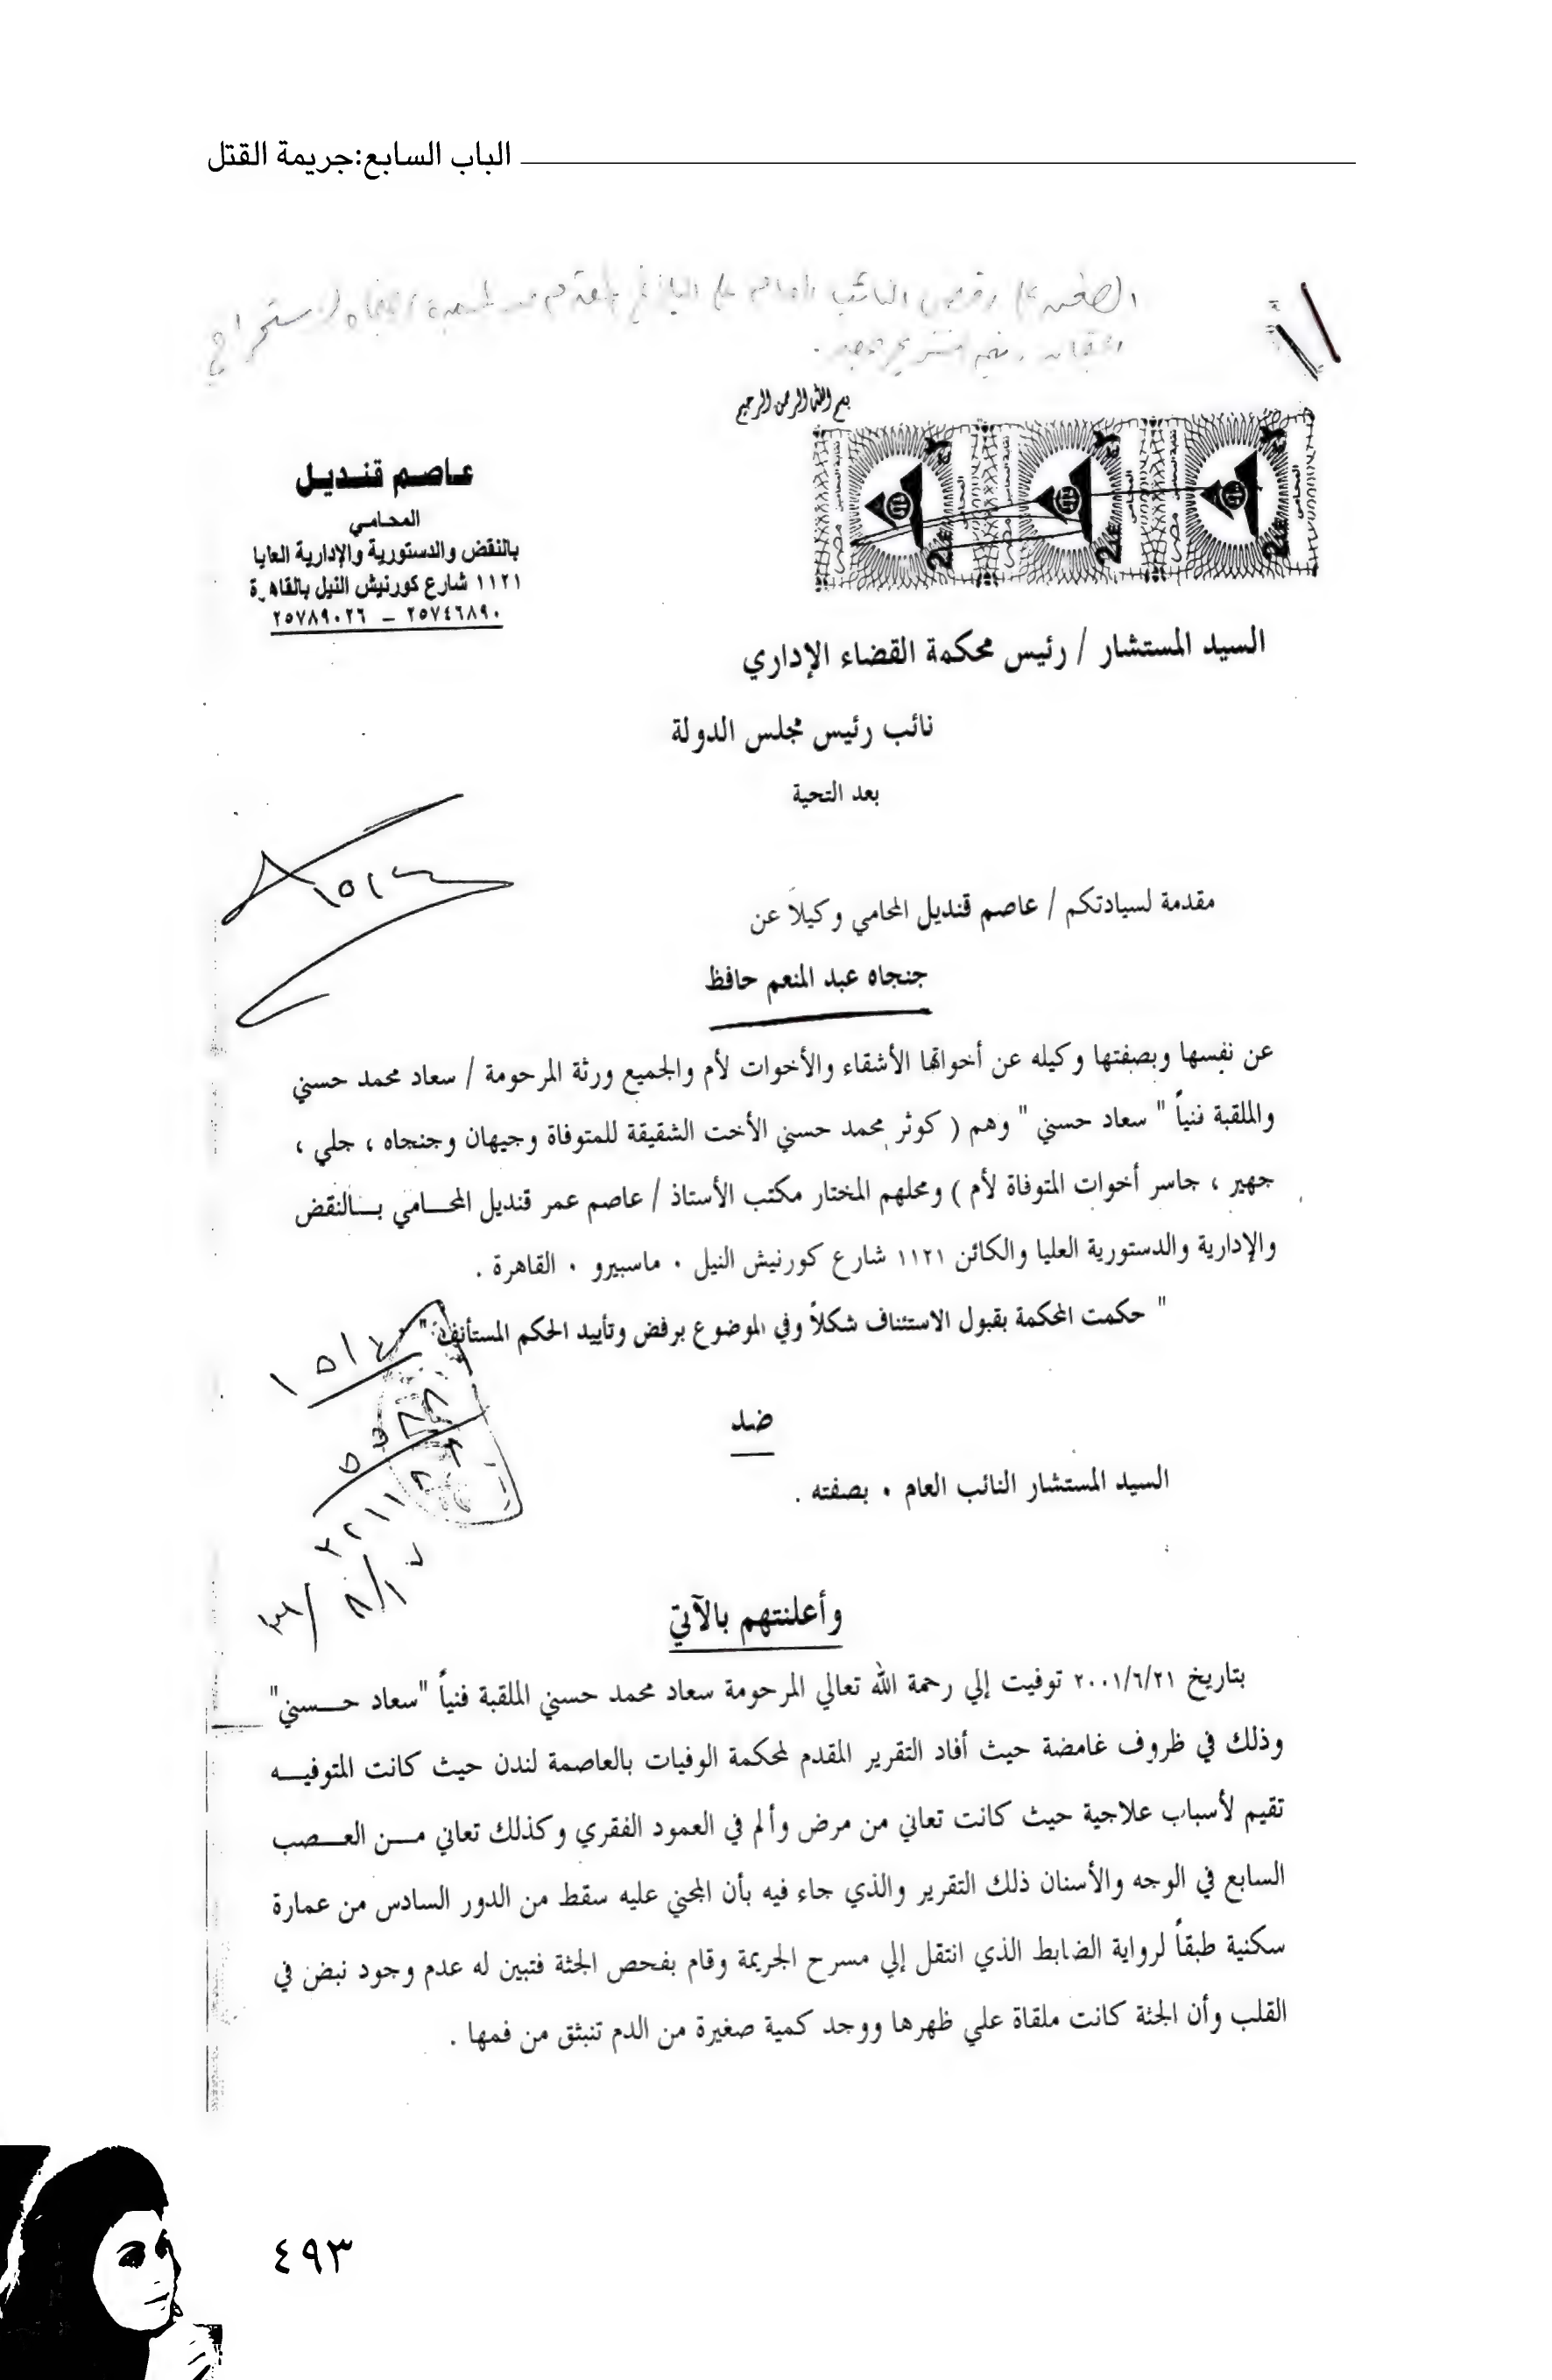 الباب السابع:جريمة القتل
بسم الله الرحمن الرحيم
عاصم قنديل
المحامي
بالنقض والدستورية والإدارية العليا
١١٢١ شارع كورنيش النيل بالقاهرة
٢٥٧٤٦٨٩٠ – ٢٥٧٨٩٠٢٦
السيد المستشار / رئيس محكمة القضاء الإداري
نائب رئيس مجلس الدولة
بعد التحية
مقدمة لسيادتكم / عاصم قنديل المحامي وكيلاً عن
جنجاه عبد المنعم حافظ
عن نفسها وبصفتها وكيله عن أخواتها الأشقاء والأخوات لأم والجميع ورثة المرحومة / سعاد محمد حسني
والملقبة فنياً " سعاد حسني " وهم ( كوثر محمد حسني الأخت الشقيقة للمتوفاة وجيهان وجنجاه ، جلي ،
جهير ، جاسر أخوات المتوفاة لأم ) ومحلهم المختار مكتب الأستاذ / عاصم عمر قنديل المحــامي بــالنقض
والإدارية والدستورية العليا والكائن ١١٢١ شارع كورنيش النيل ٠ ماسبيرو ٠ القاهرة .
" حكمت المحكمة بقبول الاستئناف شكلاً وفي الموضوع برفض وتأييد الحكم المستأنف "
ضد
السيد المستشار النائب العام ٠ بصفته .
وأعلنتهم بالآتي
بتاريخ ٢٠٠١/٦/٢١ توفيت إلي رحمة الله تعالي المرحومة سعاد محمد حسني الملقبة فنياً "سعاد حـــسني"
وذلك في ظروف غامضة حيث أفاد التقرير المقدم لمحكمة الوفيات بالعاصمة لندن حيث كانت المتوفيـــه
تقيم لأسباب علاجية حيث كانت تعاني من مرض وألم في العمود الفقري وكذلك تعاني مـــن العـــصب
السابع في الوجه والأسنان ذلك التقرير والذي جاء فيه بأن المجني عليه سقط من الدور السادس من عمارة
سكنية طبقاً لرواية الضابط الذي انتقل إلي مسرح الجريمة وقام بفحص الجثة فتبين له عدم وجود نبض في
القلب وأن الجثة كانت ملقاة علي ظهرها ووجد كمية صغيرة من الدم تنبثق من فمها .
٤٩٣